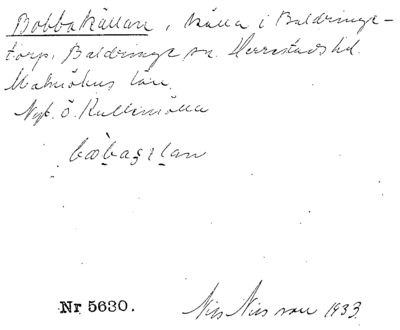 Bobbakällan, källa i Baldringe-
torp, Baldringe sn. Herrestads hd.
Malmöhus län.
Ö. Kullemölla
Nr 5630.
Nils Nilsson 1933.